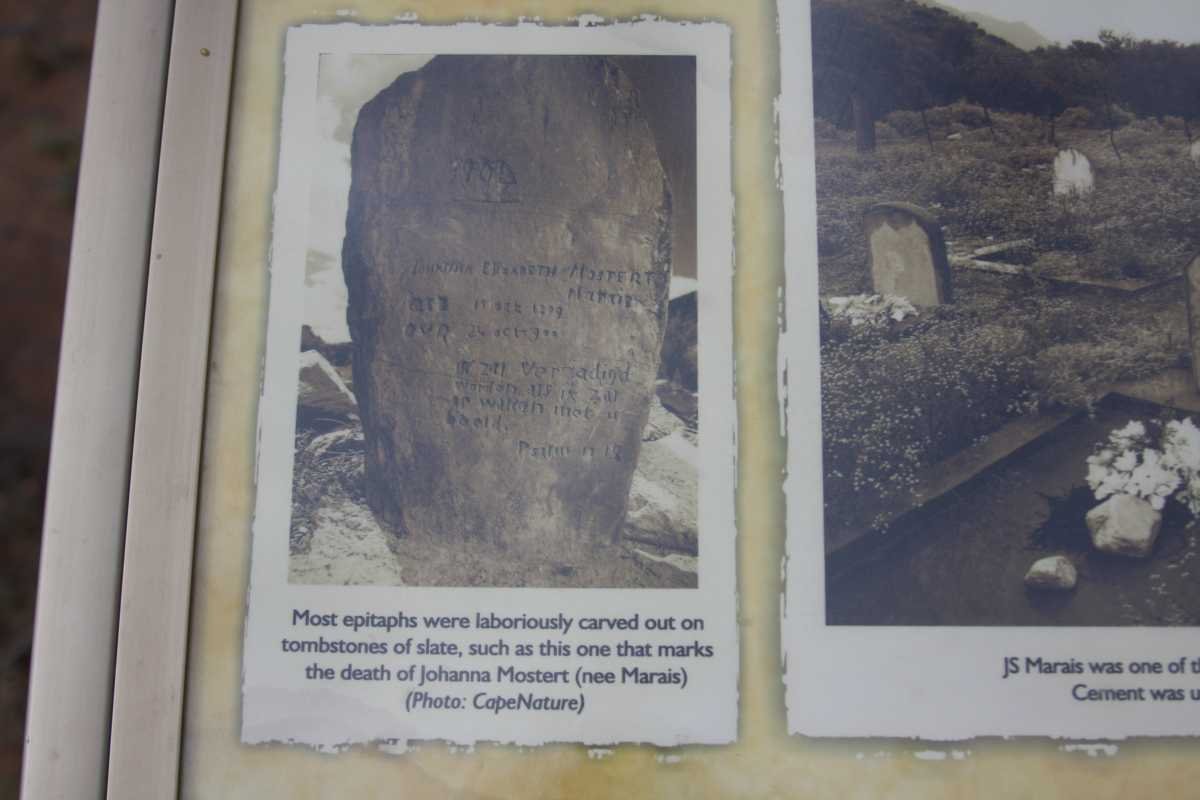 JOHANNA ELIZABETH MOSTERT
MARAIS
24 OCT
IK ZAL Verzadigd
worden als ik ZAL
op waken met u
beeld.
Psalm 17 15
Most epitaphs were laboriously carved out on
tombstones of slate, such as this one that marks
the death of Johanna Mostert (nee Marais)
(Photo: CapeNature)
JS Marais was one of
Cement was